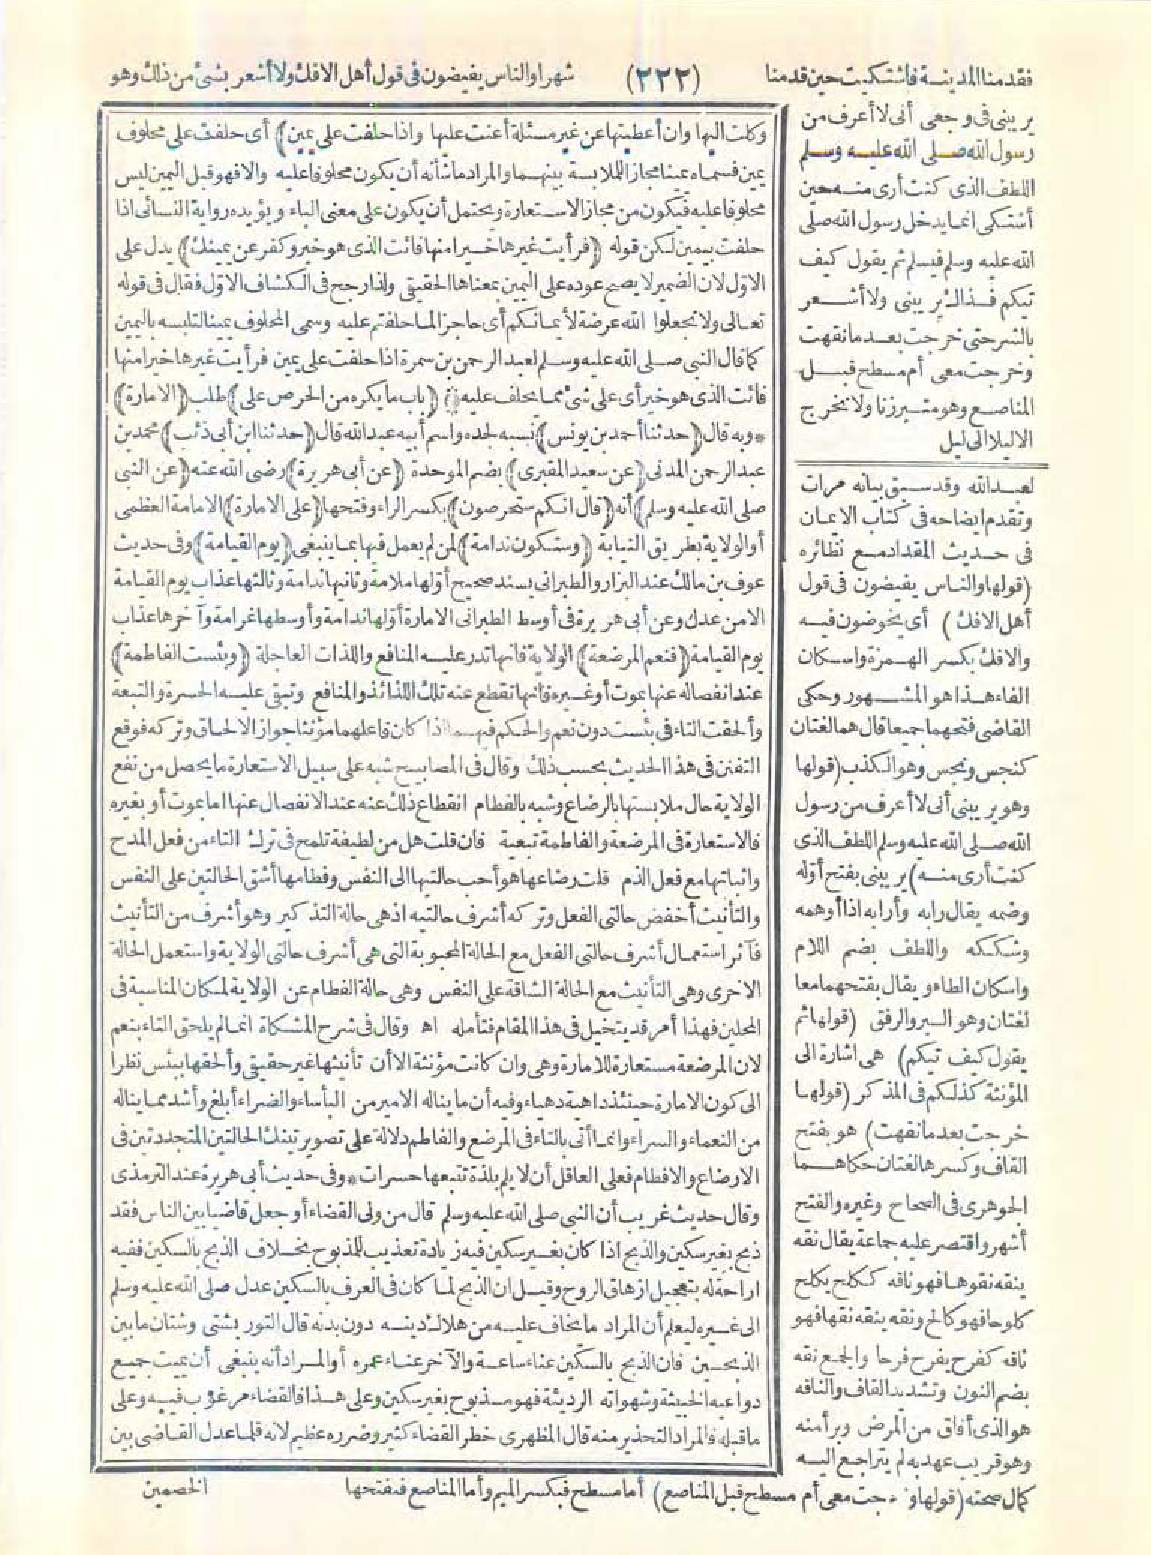 فقدمنا المدينة فاشتكيت حين قدمنا (٢٢٢) شهرا والناس يفيضون في قول أهل الافك ولا أشعر بشئ من ذلك وهو
يريبني في وجعي أني لا أعرف من
رسول الله صلى الله عليه وسلم
اللطف الذي كنت أرى منه حين
أشتكى انما يدخل رسول الله صلى
الله عليه وسلم فيسلم ثم يقول كيف
تيكم فذاك يريبني ولا أشعر
بالشر حتى خرجت بعد ما نقهت
وخرجت معي أم مسطح قبل
المناصع وهو متبرزنا ولا نخرج
الا ليلا الى ليل
لعبد الله وقد سبق بيانه مرات
وتقدم ايضاحه في كتاب الايمان
في حديث المقداد مع نظائره
(قولها والناس يفيضون في قول
أهل الافك) أي يخوضون فيه
والافك بكسر الهمزة واسكان
الفاء هذا هو المشهور وحكى
القاضي فتحهما جميعا قال هما لغتان
كنجس ونجس وهو الكذب (قولها
وهو يريبني أني لا أعرف من رسول
الله صلى الله عليه وسلم اللطف الذي
كنت أرى منه) يريبني بفتح أوله
وضمه يقال رابه وأرابه اذا أوهمه
وشككه واللطف بضم اللام
واسكان الطاء ويقال بفتحهما معا
لغتان وهو البر والرفق (قولها ثم
يقول كيف تيكم) هي اشارة الى
المؤنثة كذلكم في المذكر (قولها
خرجت بعد ما نقهت) هو بفتح
القاف وكسرها لغتان حكاهما
الجوهري في الصحاح وغيره والفتح
أشهر واقتصر عليه جماعة يقال نقه
ينقه نقوها فهو ناقه ككلح يكلح
كلوحا فهو كالح ونقه ينقه نقها فهو
ناقه كفرح يفرح فرحا والجمع نقه
بضم النون وتشديد القاف والناقه
هو الذي أفاق من المرض وبرأ منه
وهو قريب عهد به لم يتراجع اليه
كمال صحته (قولها و جت معي أم مسطح قبل المناصع) أما مسطح فبكسر الميم وأما المناصع فبفتحها
وكلت اليها وان أعطيتها عن غير مسئلة أعنت عليها واذا حلفت على يمين) أي حلفت على محلوف
يمين فسماه يمينا مجازا للملابسة بينهما والمراد ما شأنه أن يكون محلوفا عليه والا فهو قبل اليمين ليس
محلوفا عليه فيكون من مجاز الاستعارة ويحتمل أن يكون على معنى الباء ويؤيده رواية النسائي اذا
حلفت بيمين لكن قوله (فرأيت غيرها خيرا منها فائت الذي هو خير وكفر عن يمينك) يدل على
الاول لان الضمير لا يصح عوده على اليمين بمعناها الحقيقي ولذا رجح في الكشاف الاول فقال في قوله
تعالى ولا تجعلوا الله عرضة لأيمانكم أي حاجزا لما حلفتم عليه وسمى المحلوف يمينا لتلبسه باليمين
كما قال النبي صلى الله عليه وسلم لعبد الرحمن بن سمرة اذا حلفت على يمين فرأيت غيرها خيرا منها
فائت الذي هو خير أي على شئ مما يحلف عليه (باب ما يكره من الحرص على) طلب (الامارة)
* وبه قال (حدثنا أحمد بن يونس) نسبه لجده واسم أبيه عبد الله قال (حدثنا ابن أبي ذئب) محمد بن
عبد الرحمن المدني (عن سعيد المقبري) بضم الموحدة (عن أبي هريرة) رضى الله عنه (عن النبي
صلى الله عليه وسلم) أنه (قال انكم ستحرصون) بكسر الراء وفتحها (على الامارة) الامامة العظمى
أو الولاية بطريق النيابة (وستكون ندامة) لمن لم يعمل فيها بما ينبغي (يوم القيامة) وفي حديث
عوف بن مالك عند البزار والطبراني بسند صحيح أولها ملامة وثانيها ندامة وثالثها عذاب يوم القيامة
الا من عدل وعن أبي هريرة في أوسط الطبراني الامارة أولها ندامة وأوسطها غرامة وآخرها عذاب
يوم القيامة (فنعم المرضعة) الولاية فانها تدر عليه المنافع واللذات العاجلة (وبئست الفاطمة)
عند انفصاله عنها بموت أو غيره فانها تقطع عنه تلك اللذائذ والمنافع وتبقى عليه الحسرة والتبعة
وألحقت التاء في بئست دون نعم والحكم فيهما اذا كان فاعلهما مؤنثا جواز الالحاق وتركه فوقع
التفنن في هذا الحديث بحسب ذلك وقال في المصابيح شبه على سبيل الاستعارة ما يحصل من نفع
الولاية حال ملابستها بالرضاع وشبه بالفطام انقطاع ذلك عنه عند الانفصال عنها اما بموت أو بغيره
فالاستعارة في المرضعة والفاطمة تبعية فان قلت هل من لطيفة تلمح في ترك التاء من فعل المدح
واثباتها مع فعل الذم قلت رضاعها هو أحب حالتيها الى النفس وفطامها أشق الحالتين على النفس
والتأنيث أخفض حالتي الفعل وتركه أشرف حالتيه اذ هي حالة التذكير وهو أشرف من التأنيث
فآثر استعمال أشرف حالتي الفعل مع الحالة المحبوبة التي هي أشرف حالتي الولاية واستعمل الحالة
الاخرى وهي التأنيث مع الحالة الشاقة على النفس وهي حالة الفطام عن الولاية لمكان المناسبة في
المحلين فهذا أمر قد يتخيل في هذا المقام فتأمله اه وقال في شرح المشكاة انما لم يلحق التاء بنعم
لان المرضعة مستعارة للامارة وهي وان كانت مؤنثة الا أن تأنيثها غير حقيقي وألحقها ببئس نظرا
الى كون الامارة حينئذ داهية دهياء وفيه أن ما يناله الامير من البأساء والضراء أبلغ وأشد مما يناله
من النعماء والسراء وانما أتى بالتاء في المرضع والفاطم دلالة على تصوير تينك الحالتين المتجددتين في
الارضاع والافطام فعلى العاقل أن لا يلم بلذة تتبعها حسرات * وفي حديث أبي هريرة عند الترمذي
وقال حديث غريب أن النبي صلى الله عليه وسلم قال من ولى القضاء أو جعل قاضيا بين الناس فقد
ذبح بغير سكين والذبح اذا كان بغير سكين فيه زيادة تعذيب للمذبوح بخلاف الذبح بالسكين ففيه
اراحة له بتعجيل ازهاق الروح وقيل ان الذبح لما كان في العرف بالسكين عدل صلى الله عليه وسلم
الى غيره ليعلم أن المراد ما يخاف عليه من هلاك دينه دون بدنه قال التوربشتي وشتان ما بين
الذبحين فان الذبح بالسكين عناء ساعة والآخر عناء عمره أو المراد أنه ينبغي أن يميت جميع
دواعيه الخبيثة وشهواته الرديئة فهو مذبوح بغير سكين وعلى هذا فالقضاء مرغوب فيه وعلى
ما قبله فالمراد التحذير منه قال المظهري خطر القضاء كثير وضرره عظيم لانه قلما عدل القاضي بين
الخصمين